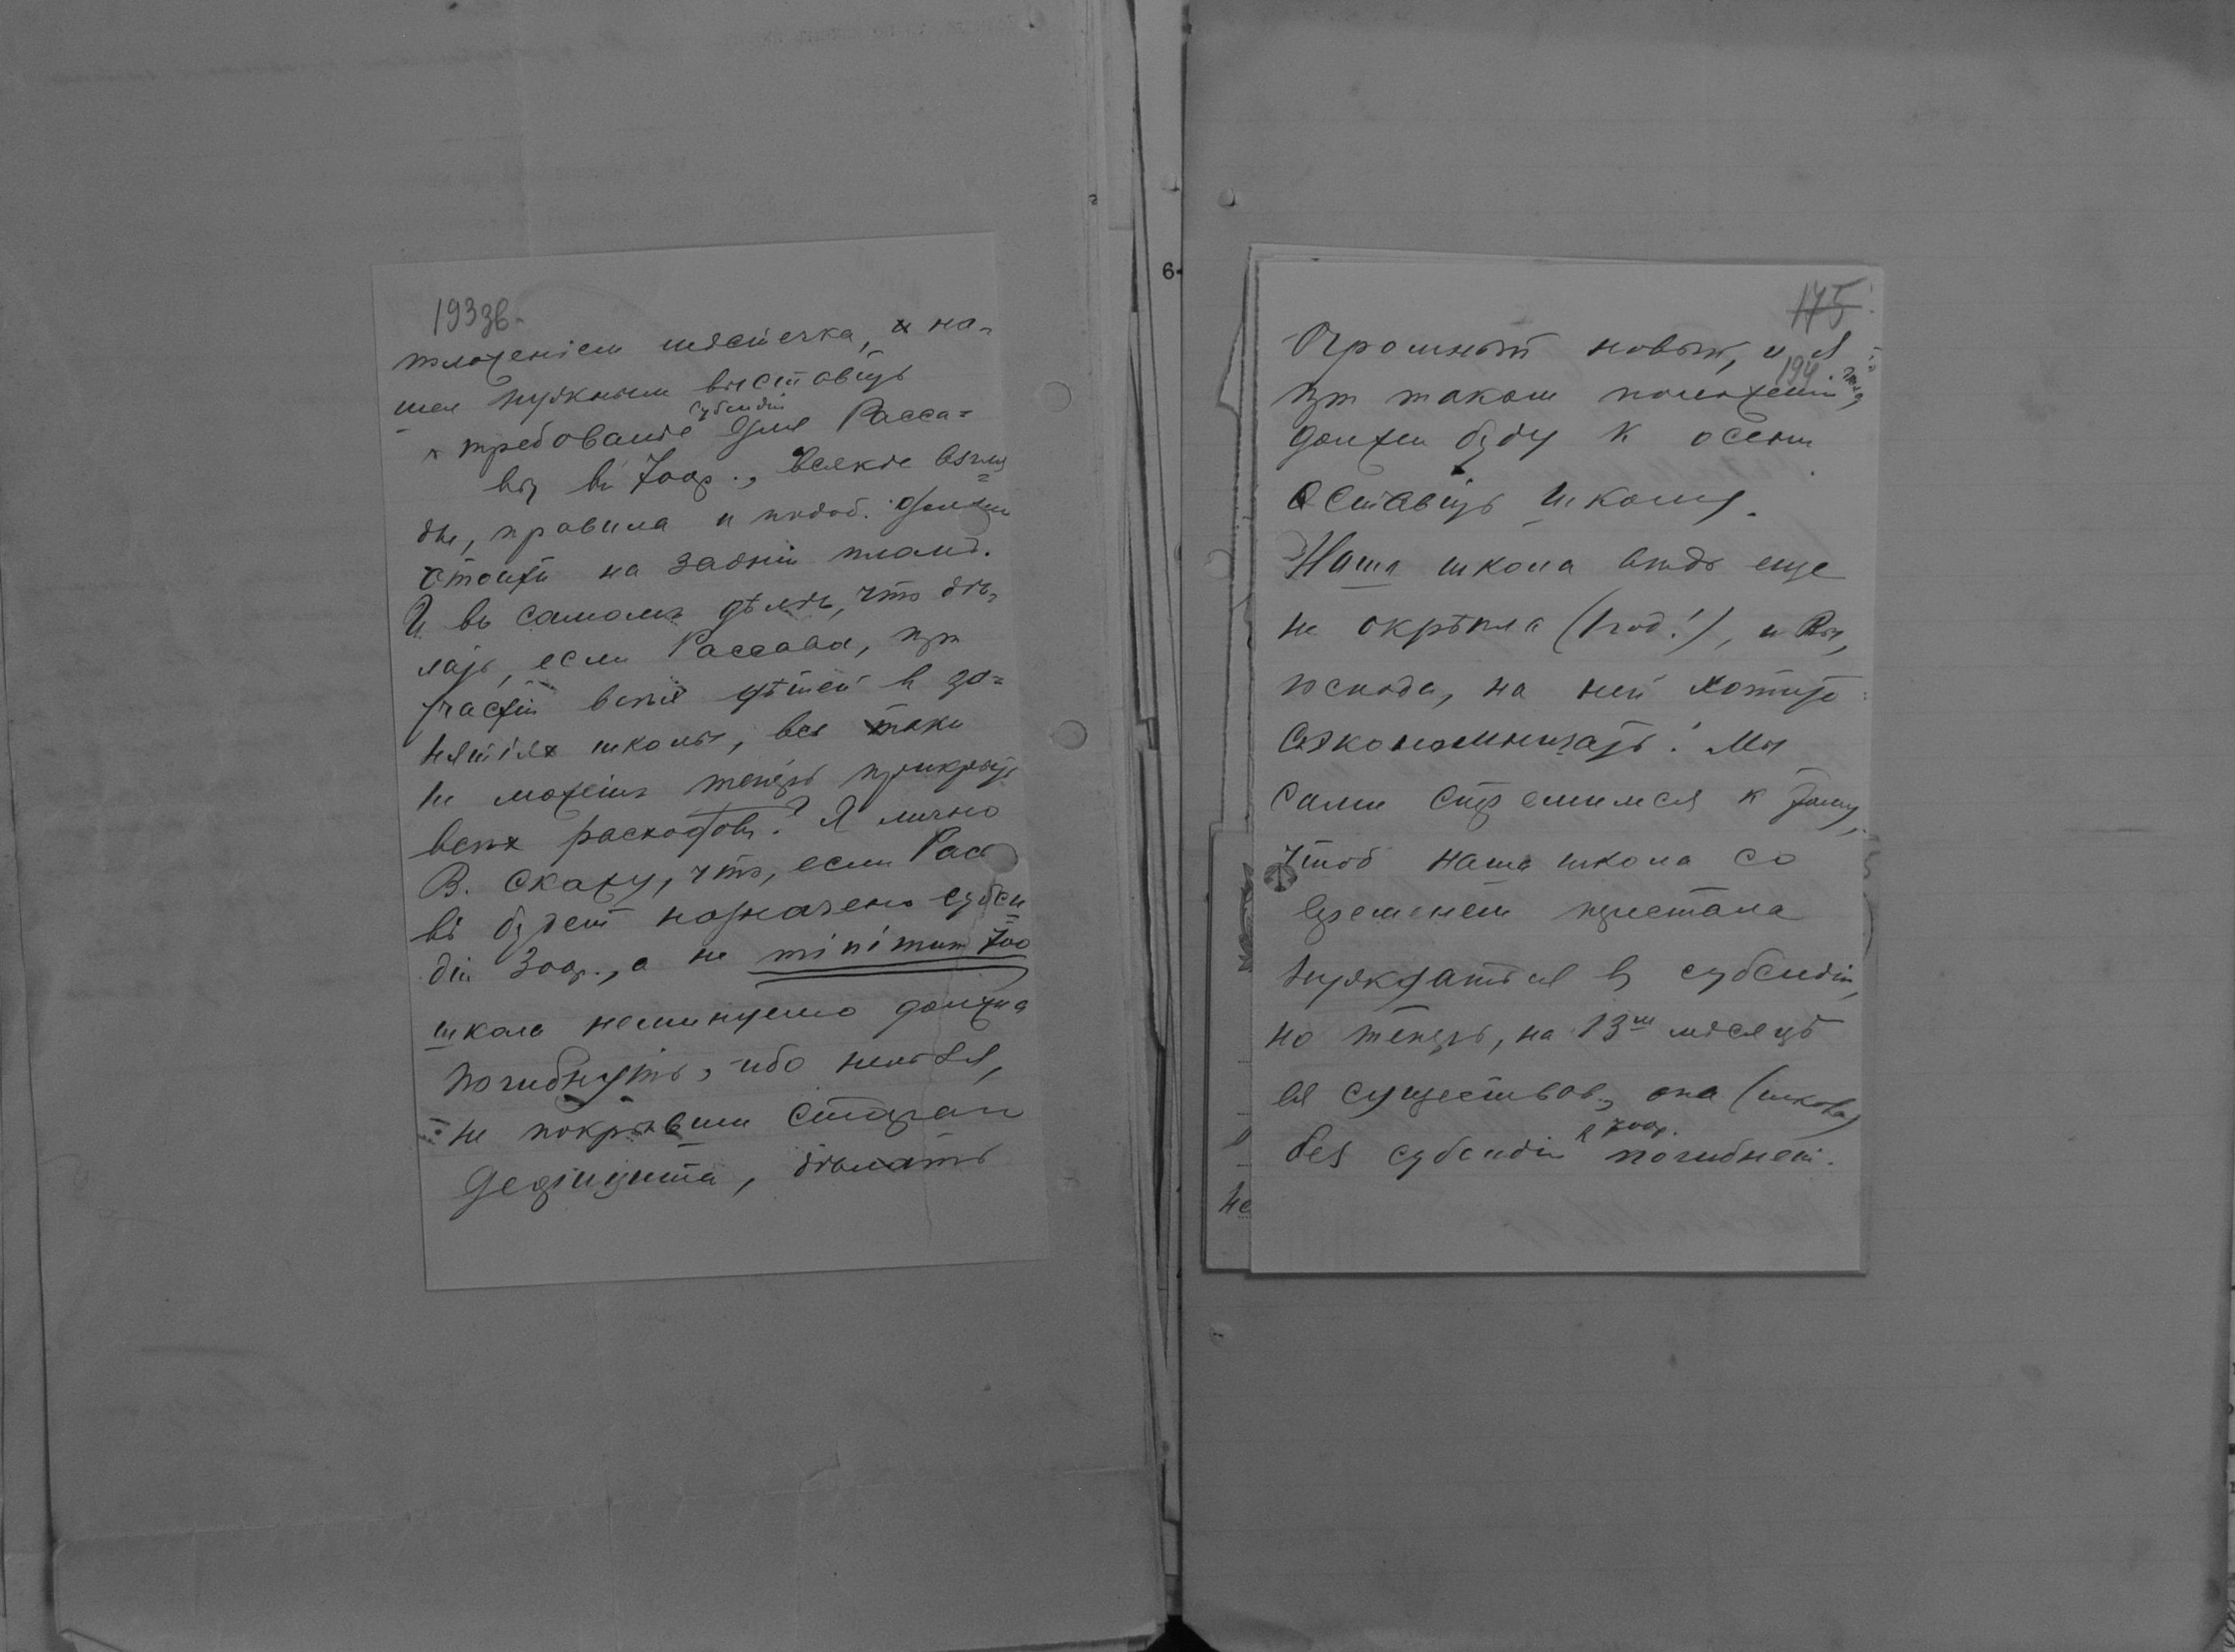 193зв.
положеніем мѣстечка, и на-
шел нужным выставить
требованіе субсидіи для Расса-
вы в 700р., всякіе взгля
ды, правила и подоб. должны
стоять на задній планъ.
И въ самомъ дѣлѣ, что дѣ-
лать, если Рассава, при
участіи всѣх дѣтей в за-
нятіях школы, все таки
не можетъ теперь прикрыть
всѣх расходовъ? Я лично
В. скажу, что, если Рас
вѣ будет назначено субси
діи 300р., а не minimum 700
школа неминуемо должна
погибнуть, ибо нельзя,
не покрывши стараго
дефицита, дѣлать
175
194
Огромный новый, и я
при таком положеніи
должен буду к осени
оставить школу.
Наша школа вѣдь еще
не окрѣпла (1 год!), и Вы,
господа, на ней хотите
сэкономничать! Мы
сами стремимся к тому,
чтоб наша школа со
временем перестала
нуждаться в субсидіи,
но теперь, на 13м мѣсяцѣ
ея существов., она (школа)
без субсидіи в 700р. погибнет.
не
6